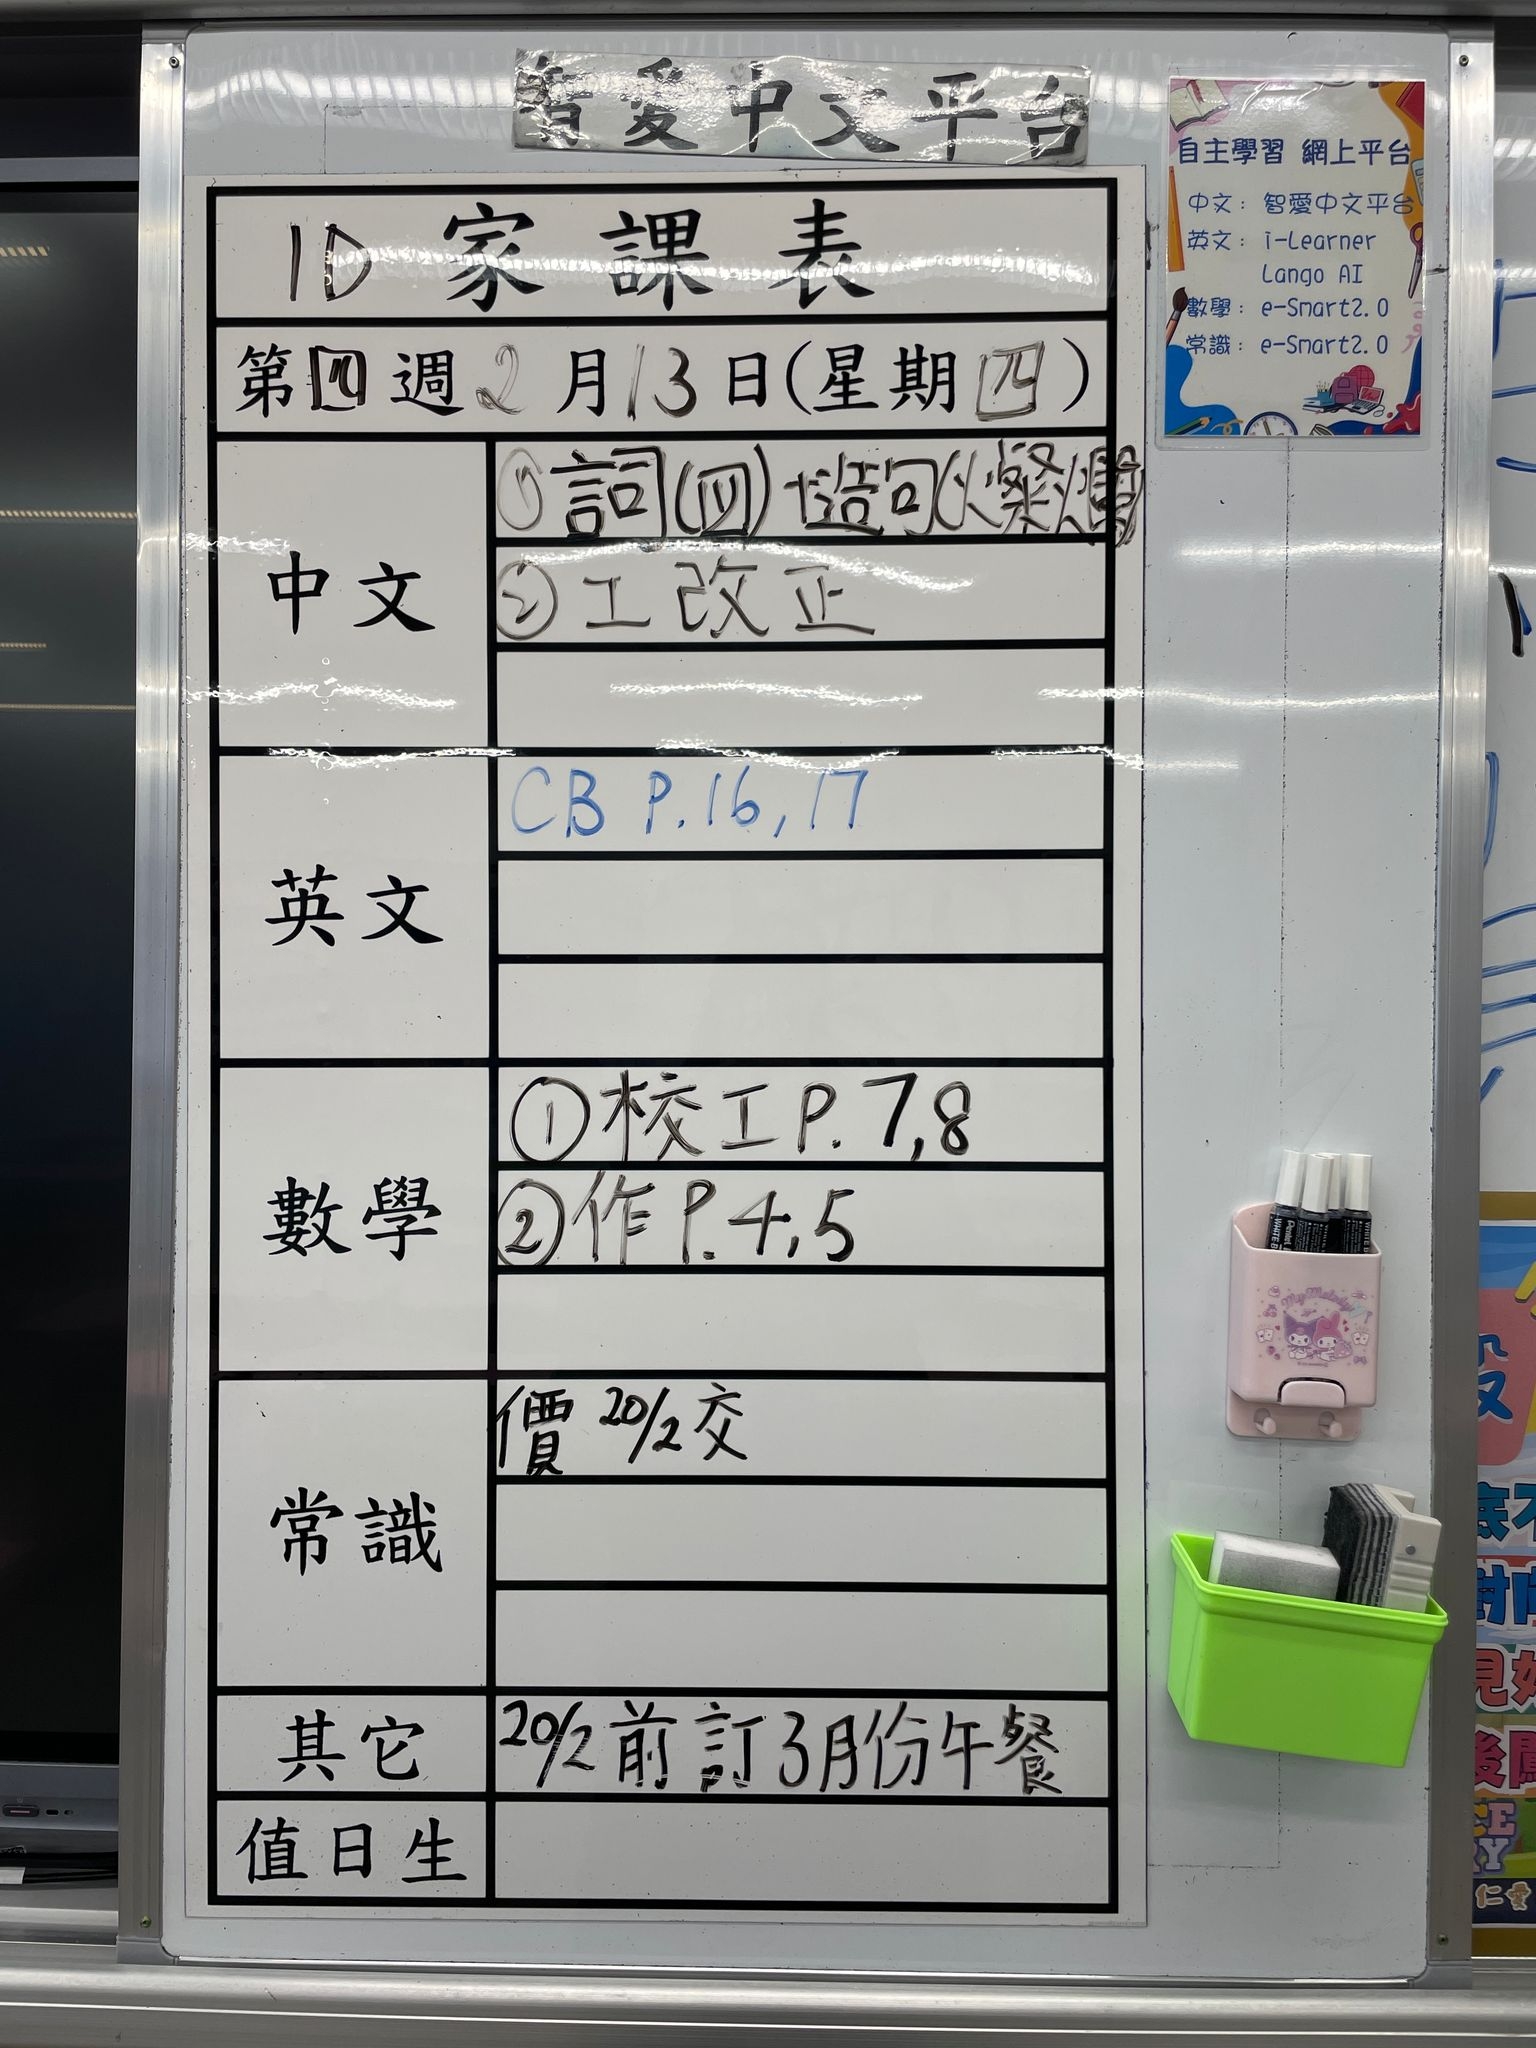 智愛中文平台
1D 家課表
第四週2月13日(星期四)
中文
①詞(四)造句(燦爛)
②工改正
英文
CB P.16,17
數學
①校工P.7,8
②作P.4,5
常識
價 20/2交
其它
20/2前訂3月份午餐
值日生
自主學習 網上平台
中文: 智愛中文平台
英文: i-Learner
Lango AI
數學: e-Smart2.0
常識: e-Smart2.0
My Melody
仁愛